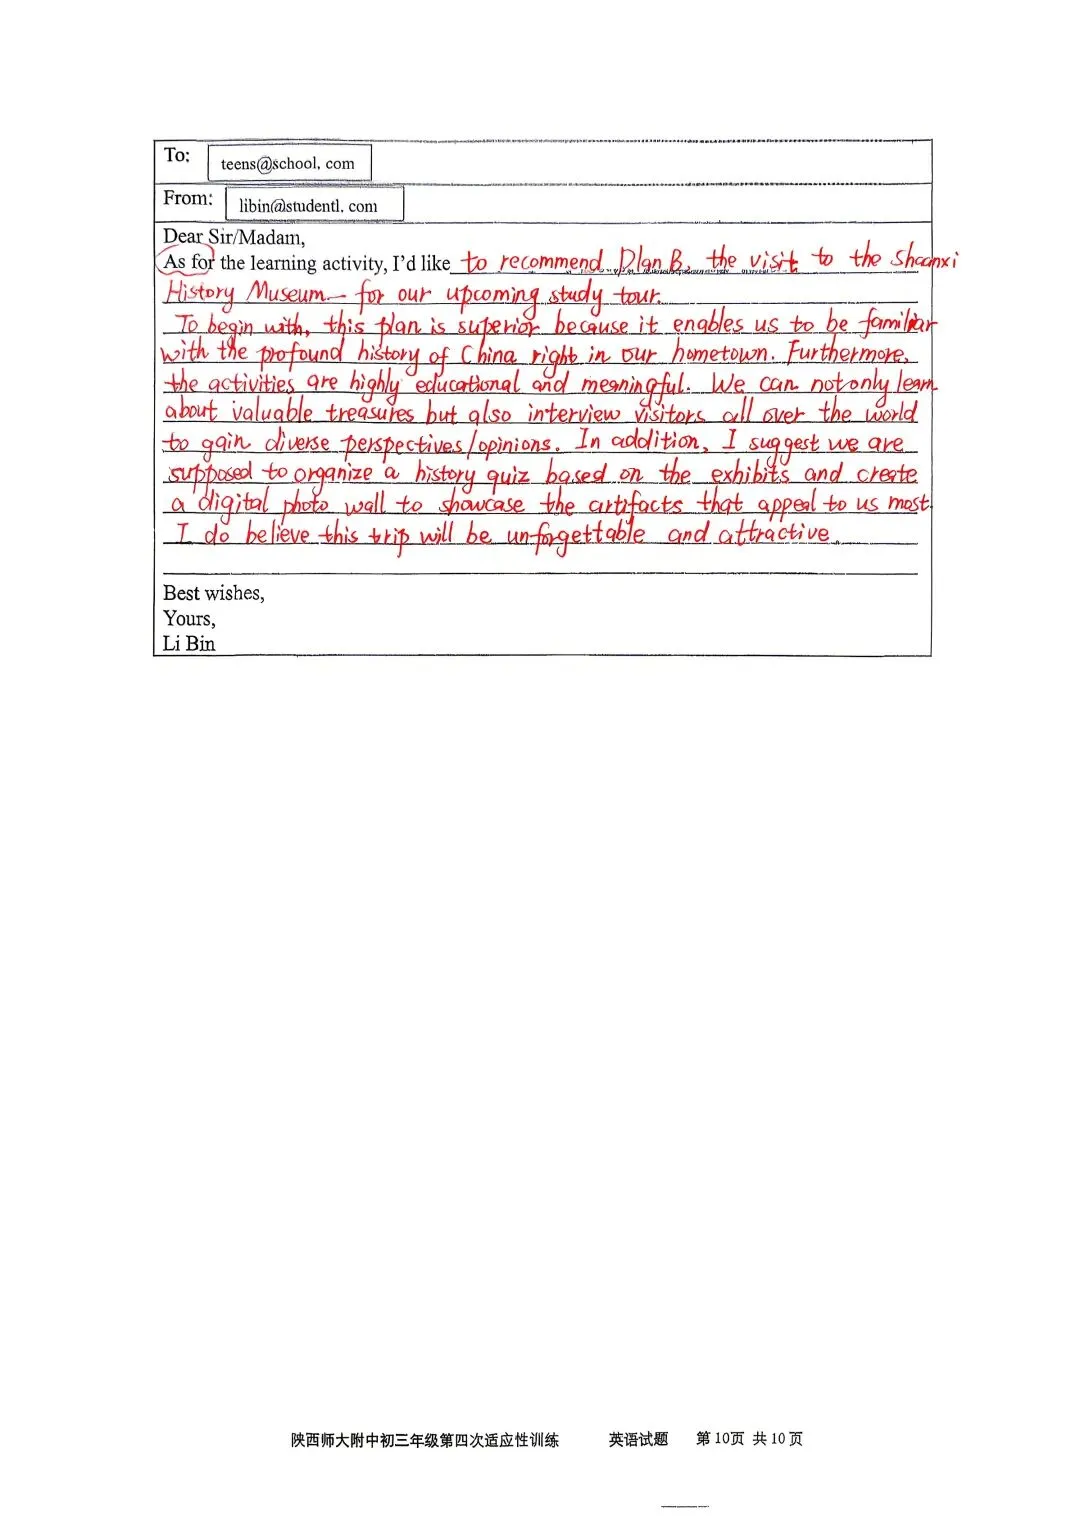 To:
teens@school. com
From:
libin@studentl. com
Dear Sir/Madam,
As for the learning activity, I'd like to recommend Plan B, the visit to the Shaanxi
History Museum — for our upcoming study tour.
To begin with, this plan is superior because it enables us to be familiar
with the profound history of China right in our hometown. Furthermore,
the activities are highly educational and meaningful. We can not only learn
about valuable treasures but also interview visitors all over the world
to gain diverse perspectives/opinions. In addition, I suggest we are
supposed to organize a history quiz based on the exhibits and create
a digital photo wall to showcase the artifacts that appeal to us most.
I do believe this trip will be unforgettable and attractive.
Best wishes,
Yours,
Li Bin
陕西师大附中初三年级第四次适应性训练 英语试题 第10页 共10页